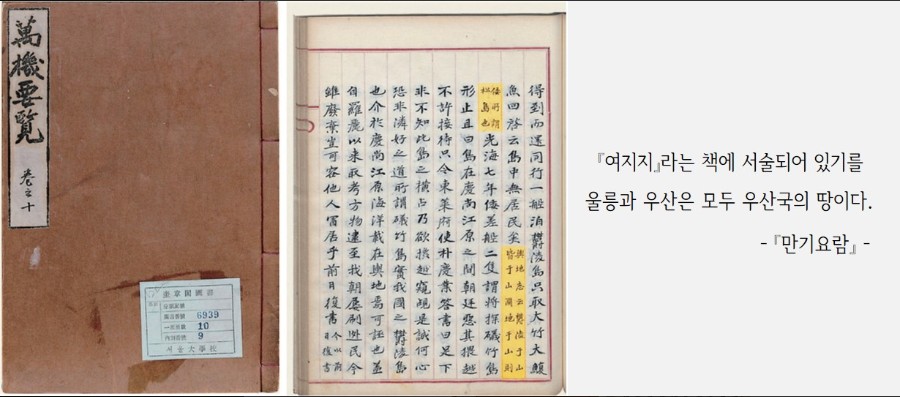 萬機要覽
卷之十
奎章閣圖書
6939
10
9
서울大學校
得到而還同行一船泊欝陵島只取大竹大鰒
魚回啓云島中無居民矣輿地志云欝陵于山皆于山國地于山則
倭所謂松島也光海七年倭差船二隻謂將探礒竹島
形止且曰島在慶尚江原之間朝廷惡其猥越
不許接待只令東萊府使朴慶業答書曰足下
非不知此島之橫占乃欲攙越窺覘是誠何心
恐非隣好之道所謂礒竹島實我國之欝陵島
也介於慶尚江原海洋載在輿地焉可誣也蓋
自羅麗以來取考方物逮至我朝屢刷逃民今
雖廢棄豈可容他人冒居乎前日復書今以前日復書
『여지지』라는 책에 서술되어 있기를
울릉과 우산은 모두 우산국의 땅이다.
-『만기요람』-